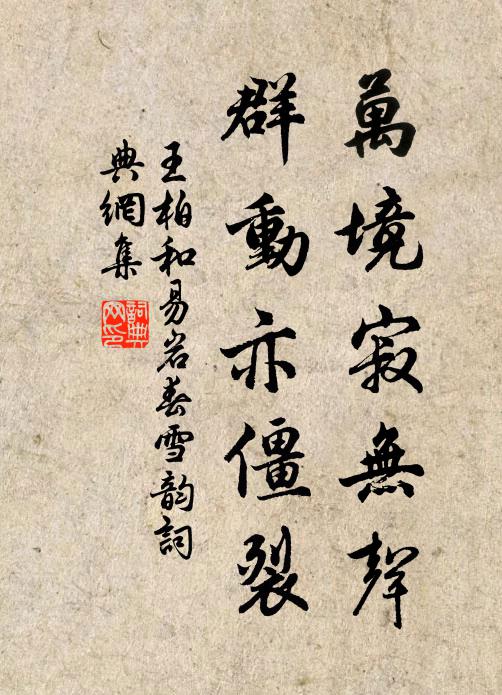 萬境寂無聲
群動亦僵裂
王柏和易岩春雪韵詞
典網集
詞典
网印